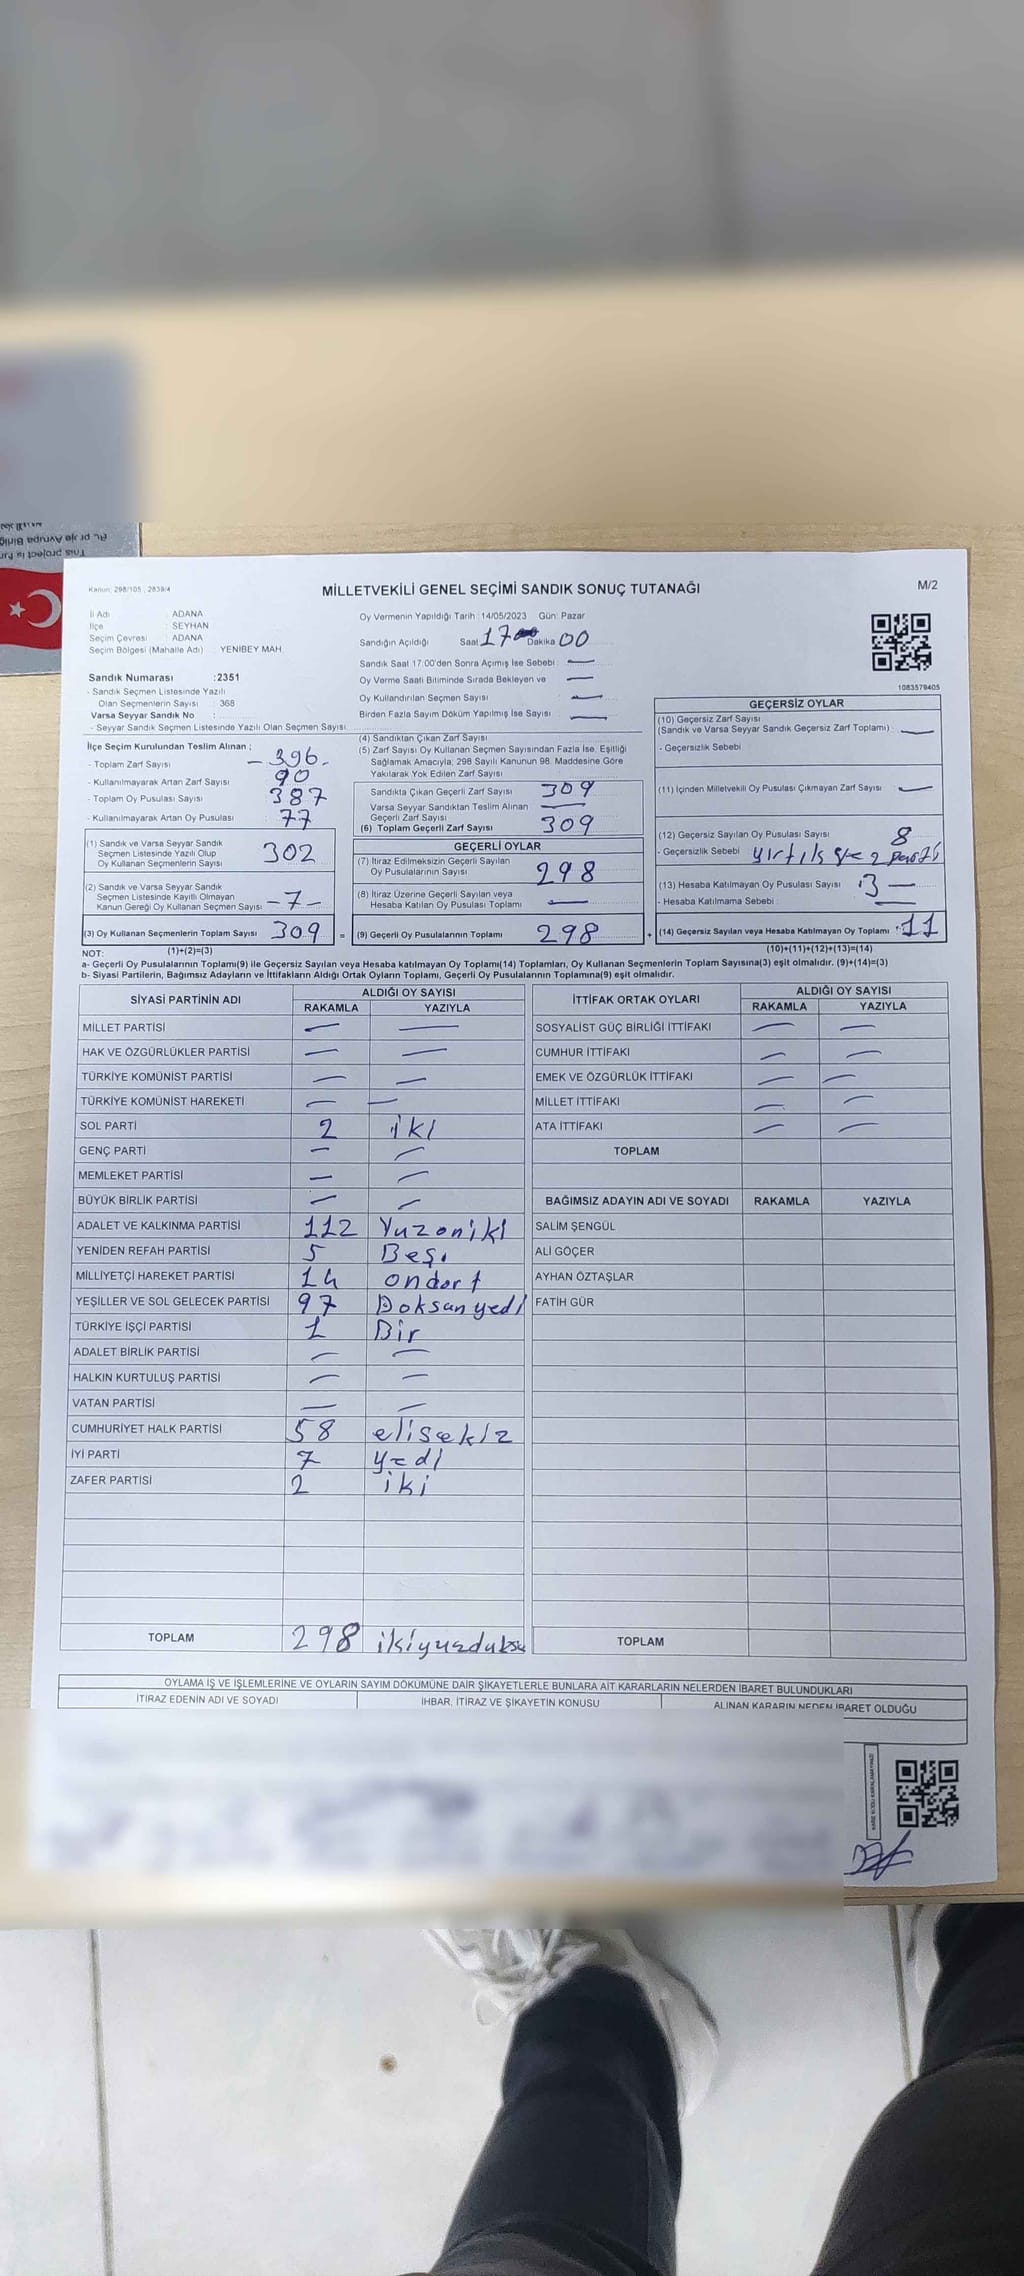 MİLLETVEKİLİ GENEL SEÇİMİ SANDIK SONUÇ TUTANAĞI
M/2
Kanun: 298/105 , 2839/4
İl Adı : ADANA
İlçe : SEYHAN
Seçim Çevresi : ADANA
Seçim Bölgesi (Mahalle Adı) : YENİBEY MAH.
Sandık Numarası :2351
- Sandık Seçmen Listesinde Yazılı
Olan Seçmenlerin Sayısı : 368
Varsa Seyyar Sandık No :
- Seyyar Sandık Seçmen Listesinde Yazılı Olan Seçmen Sayısı
Oy Vermenin Yapıldığı Tarih :14/05/2023 Gün: Pazar
Sandığın Açıldığı Saat 17 Dakika 00
Sandık Saat 17.00'den Sonra Açımış İse Sebebi : —
Oy Verme Saati Bitiminde Sırada Bekleyen ve —
Oy Kullandırılan Seçmen Sayısı —
Birden Fazla Sayım Döküm Yapılmış İse Sayısı —
1083579405
İlçe Seçim Kurulundan Teslim Alınan ;
- Toplam Zarf Sayısı - 396-
- Kullanılmayarak Artan Zarf Sayısı 90
- Toplam Oy Pusulası Sayısı 387
- Kullanılmayarak Artan Oy Pusulası 77
(1) Sandık ve Varsa Seyyar Sandık
Seçmen Listesinde Yazılı Olup
Oy Kullanan Seçmenlerin Sayısı 302
(2) Sandık ve Varsa Seyyar Sandık
Seçmen Listesinde Kayıtlı Olmayan
Kanun Gereği Oy Kullanan Seçmen Sayısı -7-
(3) Oy Kullanan Seçmenlerin Toplam Sayısı 309 =
(4) Sandıktan Çıkan Zarf Sayısı
(5) Zarf Sayısı Oy Kullanan Seçmen Sayısından Fazla İse, Eşitliği
Sağlamak Amacıyla; 298 Sayılı Kanunun 98. Maddesine Göre
Yakılarak Yok Edilen Zarf Sayısı
Sandıkta Çıkan Geçerli Zarf Sayısı 309
Varsa Seyyar Sandıktan Teslim Alınan
Geçerli Zarf Sayısı —
(6) Toplam Geçerli Zarf Sayısı 309
GEÇERLİ OYLAR
(7) İtiraz Edilmeksizin Geçerli Sayılan
Oy Pusulalarının Sayısı 298
(8) İtiraz Üzerine Geçerli Sayılan veya
Hesaba Katılan Oy Pusulası Toplamı —
(9) Geçerli Oy Pusulalarının Toplamı 298 +
GEÇERSİZ OYLAR
(10) Geçersiz Zarf Sayısı
(Sandık ve Varsa Seyyar Sandık Geçersiz Zarf Toplamı) —
- Geçersizlik Sebebi
(11) İçinden Milletvekili Oy Pusulası Çıkmayan Zarf Sayısı —
(12) Geçersiz Sayılan Oy Pusulası Sayısı 8
- Geçersizlik Sebebi
(13) Hesaba Katılmayan Oy Pusulası Sayısı 3 —
- Hesaba Katılmama Sebebi : —
(14) Geçersiz Sayılan veya Hesaba Katılmayan Oy Toplamı 11
NOT: (1)+(2)=(3) (10)+(11)+(12)+(13)=(14)
a- Geçerli Oy Pusulalarının Toplamı(9) ile Geçersiz Sayılan veya Hesaba katılmayan Oy Toplamı(14) Toplamları, Oy Kullanan Seçmenlerin Toplam Sayısına(3) eşit olmalıdır. (9)+(14)=(3)
b- Siyasi Partilerin, Bağımsız Adayların ve İttifakların Aldığı Ortak Oyların Toplamı, Geçerli Oy Pusulalarının Toplamına(9) eşit olmalıdır.
SİYASİ PARTİNİN ADI ALDIĞI OY SAYISI
RAKAMLA YAZIYLA
MİLLET PARTİSİ — —
HAK VE ÖZGÜRLÜKLER PARTİSİ — —
TÜRKİYE KOMÜNİST PARTİSİ — —
TÜRKİYE KOMÜNİST HAREKETİ — —
SOL PARTİ 2 iki
GENÇ PARTİ — —
MEMLEKET PARTİSİ — —
BÜYÜK BİRLİK PARTİSİ — —
ADALET VE KALKINMA PARTİSİ 112 Yuzoniki
YENİDEN REFAH PARTİSİ 5 Beş.
MİLLİYETÇİ HAREKET PARTİSİ 14 ondort
YEŞİLLER VE SOL GELECEK PARTİSİ 97 Doksanyedi
TÜRKİYE İŞÇİ PARTİSİ 1 Bir
ADALET BİRLİK PARTİSİ — —
HALKIN KURTULUŞ PARTİSİ — —
VATAN PARTİSİ — —
CUMHURİYET HALK PARTİSİ 58 elisekiz
İYİ PARTİ 7 yedi
ZAFER PARTİSİ 2 iki
TOPLAM 298
İTTİFAK ORTAK OYLARI ALDIĞI OY SAYISI
RAKAMLA YAZIYLA
SOSYALİST GÜÇ BİRLİĞİ İTTİFAKI — —
CUMHUR İTTİFAKI — —
EMEK VE ÖZGÜRLÜK İTTİFAKI — —
MİLLET İTTİFAKI — —
ATA İTTİFAKI — —
TOPLAM
BAĞIMSIZ ADAYIN ADI VE SOYADI RAKAMLA YAZIYLA
SALİM ŞENGÜL
ALİ GÖÇER
AYHAN ÖZTAŞLAR
FATİH GÜR
TOPLAM
OYLAMA İŞ VE İŞLEMLERİNE VE OYLARIN SAYIM DÖKÜMÜNE DAİR ŞİKAYETLERLE BUNLARA AİT KARARLARIN NELERDEN İBARET BULUNDUKLARI
İTİRAZ EDENİN ADI VE SOYADI İHBAR, İTİRAZ VE ŞİKAYETİN KONUSU ALINAN KARARIN NEDEN İBARET OLDUĞU